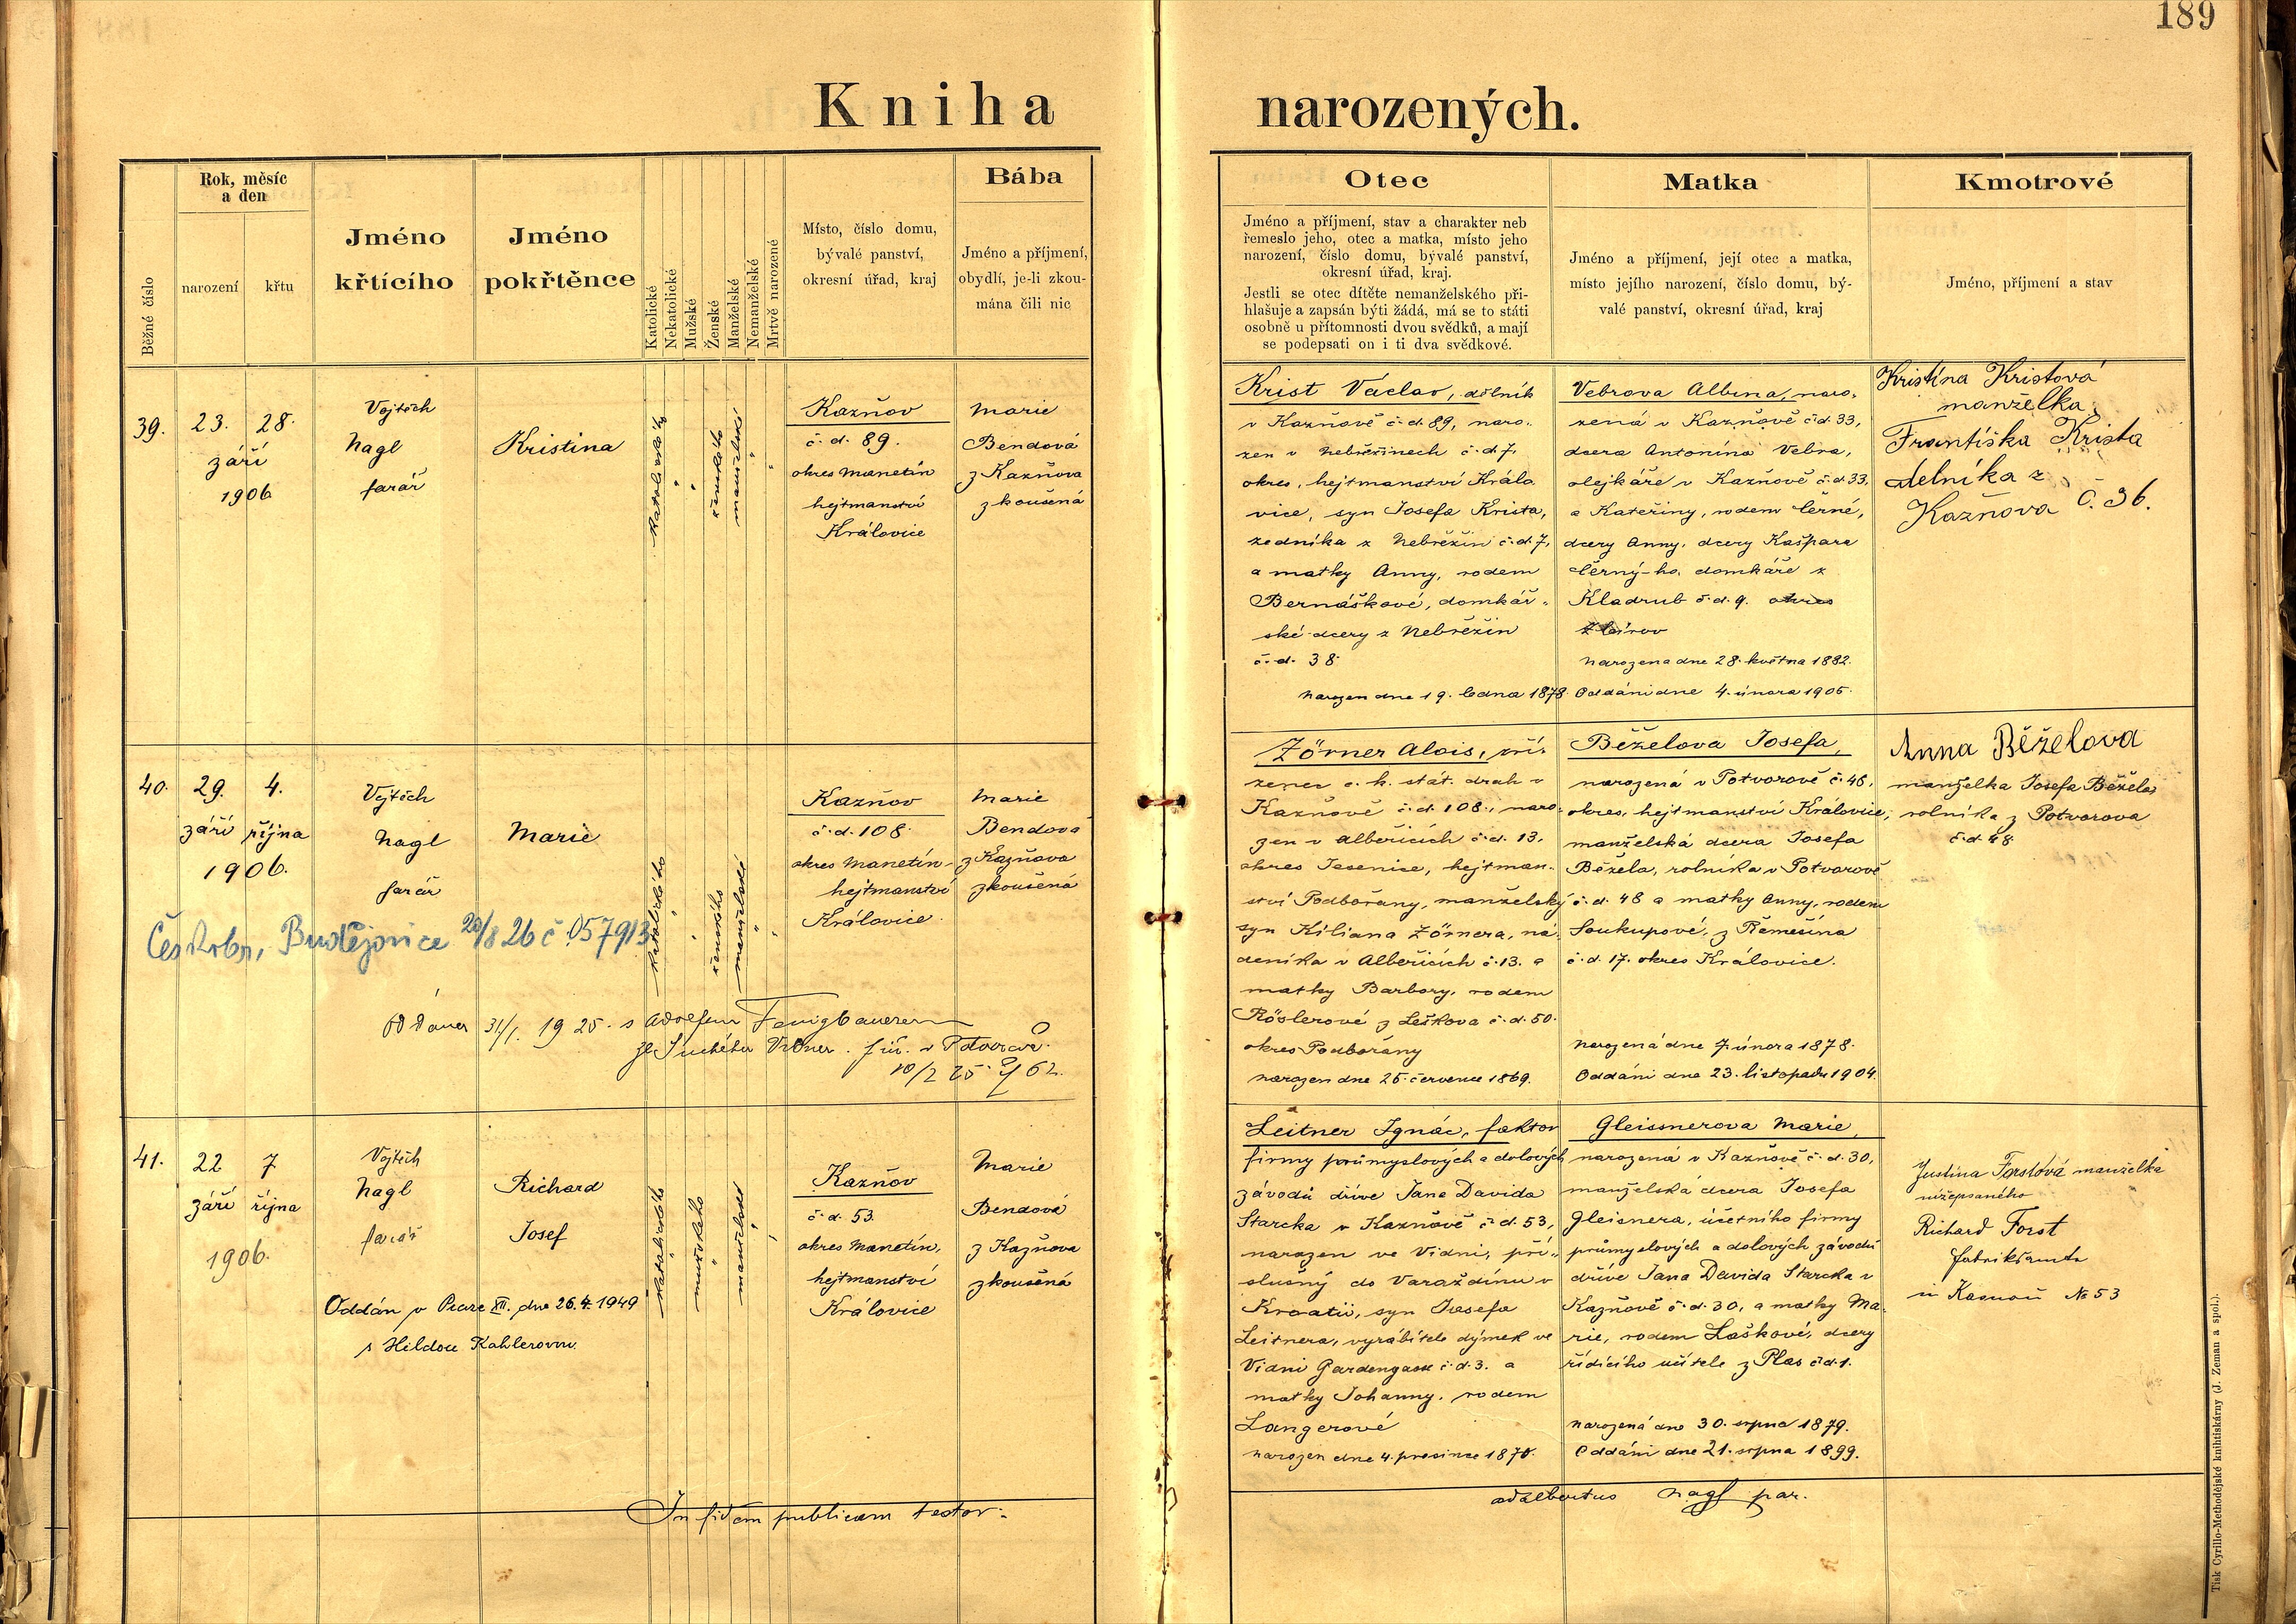 189
Kniha narozených.
Běžné číslo
Rok, měsíc
a den
narození
křtu
Jméno
křtícího
Jméno
pokřtěnce
Katolické
Nekatolické
Mužské
Ženské
Manželské
Nemanželské
Mrtvě narozené
Místo, číslo domu,
bývalé panství,
okresní úřad, kraj
Bába
Jméno a příjmení,
obydlí, je-li zkou-
mána čili nic
Otec
Jméno a příjmení, stav a charakter neb
řemeslo jeho, otec a matka, místo jeho
narození, číslo domu, bývalé panství,
okresní úřad, kraj.
Jestli se otec dítěte nemanželského při-
hlašuje a zapsán býti žádá, má se to státi
osobně u přítomnosti dvou svědků, a mají
se podepsati on i ti dva svědkové.
Matka
Jméno a příjmení, její otec a matka,
místo jejího narození, číslo domu, bý-
valé panství, okresní úřad, kraj
Kmotrové
Jméno, příjmení a stav
39.
23. 28.
září
1906
Vojtěch
Nagl
farář
Kristina
katolického
ženského
manželské
Kazňov
č. d. 89.
okres Manetín
hejtmanství
Královice
Marie
Bendová
z Kazňova
zkoušená
Krist Václav, dělník
v Kazňově č. d. 89, naro-
zen v Nebřezinech č. d. 7,
okres, hejtmanství Králo
vice, syn Josefa Krista,
zedníka z Nebřezin č. d. 7,
a matky Anny, rodem
Bernáškové, domkář-
ské dcery z Nebřezin
č. d. 38.
Narozen dne 19. ledna 1878.
Vebrova Albina, naro-
zená v Kazňově č. d. 33,
dcera Antonína Vebra,
olejkáře v Kazňově č. d. 33,
a Kateřiny, rodem Černé,
dcery Anny, dcery Kašpara
Černý-ho, domkáře z
Kladrub č. d. 9. okres
Zbirov
Narozena dne 28. května 1882.
Oddáni dne 4. února 1905.
Kristina Kristová
manželka
Františka Krista
delníka z
Kažňova č. 36.
40.
29. 4.
září října
1906.
Vojtěch
Nagl
farář
Marie
katolického
ženského
manželské
Kazňov
č. d. 108.
okres Manetín
hejtmanství
Královice.
Marie
Bendova
z Kazňova
zkoušená
Budějovice 20/8 26 č.
31/1. 1925. s Adolfem
10/2 25.
Zörner Alois, zří-
zenec c. k. stát. drah v
Kazňově č. d. 108., naro-
zen v Albericich č. d. 13,
okres Jesenice, hejtman-
ství Podbořany, manželský
syn Kiliana Zörnera, ná-
deníka v Albericich č. 13. a
matky Barbory, rodem
Röslerové z Leškova č. d. 50.
okres Podbořany
narozen dne 25. července 1869.
Běželova Josefa,
narozená v Potvorově č. 48,
okres, hejtmanství Královice,
manželská dcera Josefa
Běžela, rolníka v Potvorově
č. d. 48 a matky Anny, rodem
Soukupové, z Řemešína
č. d. 17. okres Královice.
Narozená dne 7. února 1878.
Oddáni dne 23. listopadu 1904.
Anna Běželova
manželka Josefa Běžela
rolníka z Potvorova
č. d. 48
41.
22 7
září října
1906.
Vojtěch
Nagl
farář
Richard
Josef
katolického
mužského
manželské
Kazňov
č. d. 53.
okres Manetín,
hejtmanství
Královice
Marie
Bendová
z Kazňova
zkoušená
Oddán v Praze XII. dne 26.4. 1949
s Hildou Kahlerovou.
Leitner Ignác, faktor
firmy průmyslových a dolových
závodů dříve Jana Davida
Starcka v Kazňově č. d. 53,
narozen ve Vidni, pří-
slušný do Varaždínu v
Kroatii, syn Josefa
Leitnera, vyrábitele dýmek ve
Vidni Gardengasse č. d. 3. a
matky Johanny, rodem
Langerové
narozen dne 4. prosince 1870.
Gleissnerova Marie,
narozená v Kazňově č. d. 30,
manželská dcera Josefa
Gleisnera, účetního firmy
průmyslových a dolových závodů
dříve Jana Davida Starcka v
Kazňově č. d. 30, a matky Ma-
rie, rodem Laškové, dcery
řídícího učitele z Plas č. d. 1.
Narozená dne 30. srpna 1879.
Oddáni dne 21. srpna 1899.
Justina Forstová manželka
nížepsaného
Richard Forst
fabriksbeamter
in Kasnau № 53
In fidem publicam testor:
Adalbertus Nagl par.
Tisk Cyrillo-Methodějské knihtiskárny (J. Zeman a spol.).